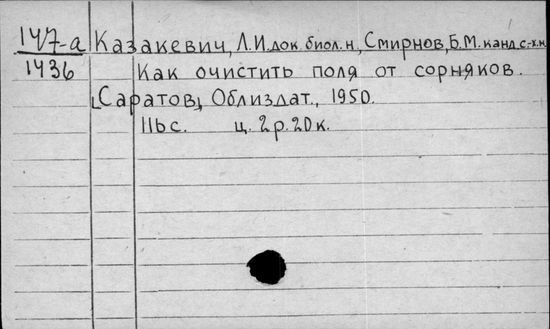 147-а Казакевич, Л.И. док. биол. н., Смирнов, Б.М. канд с.-х.н.
1436 Как очистить поля от сорняков.
[Саратов], Облиздат., 1950.
116 с. ц. 2р. 20к.